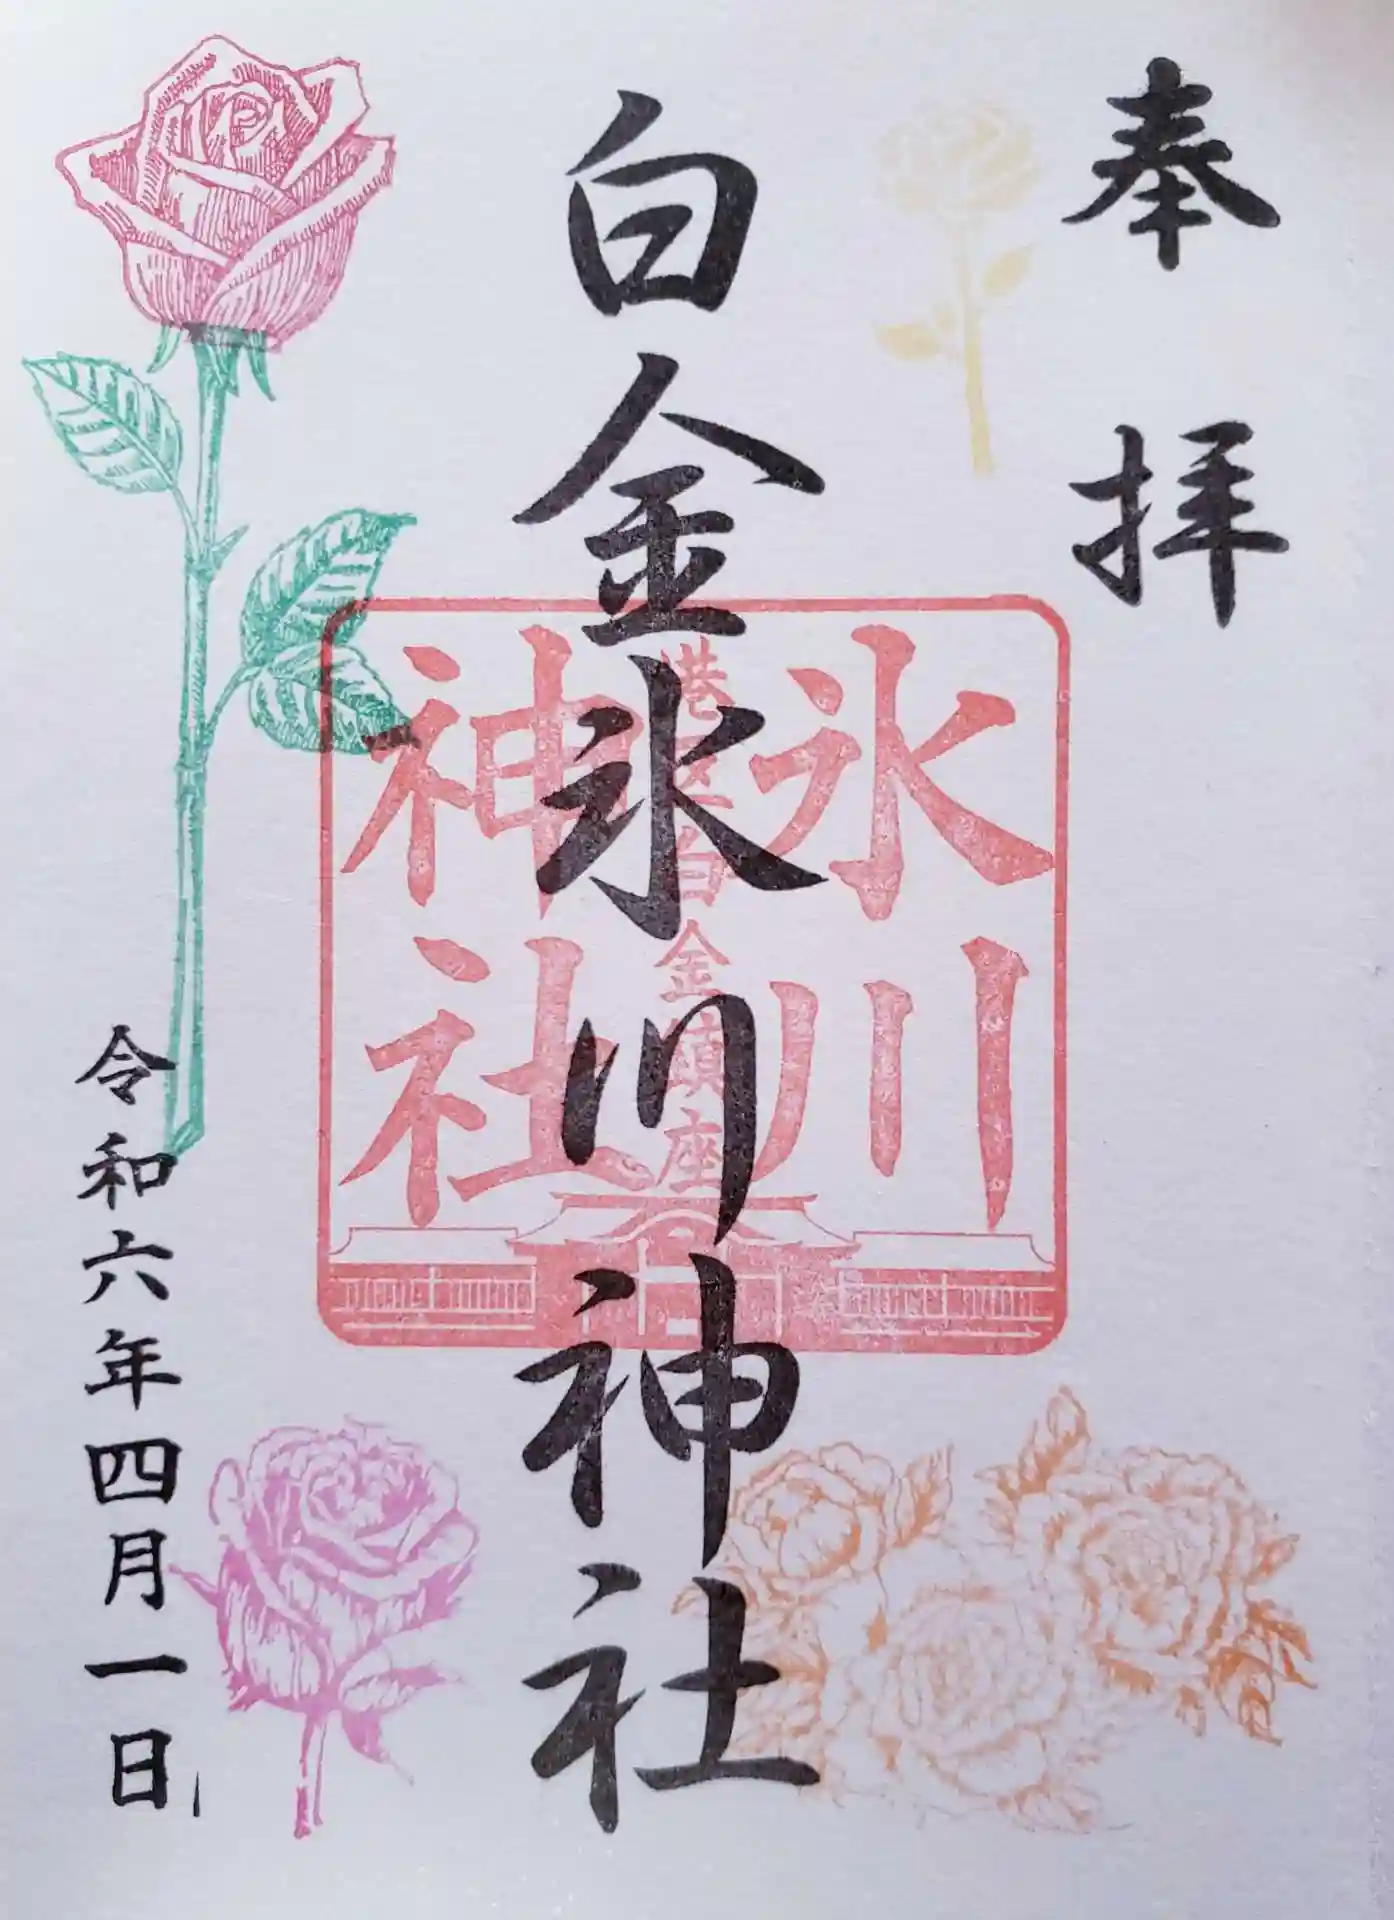 奉拝
白金氷川神社
氷川
港区白金鎮座
神社
令和六年四月一日